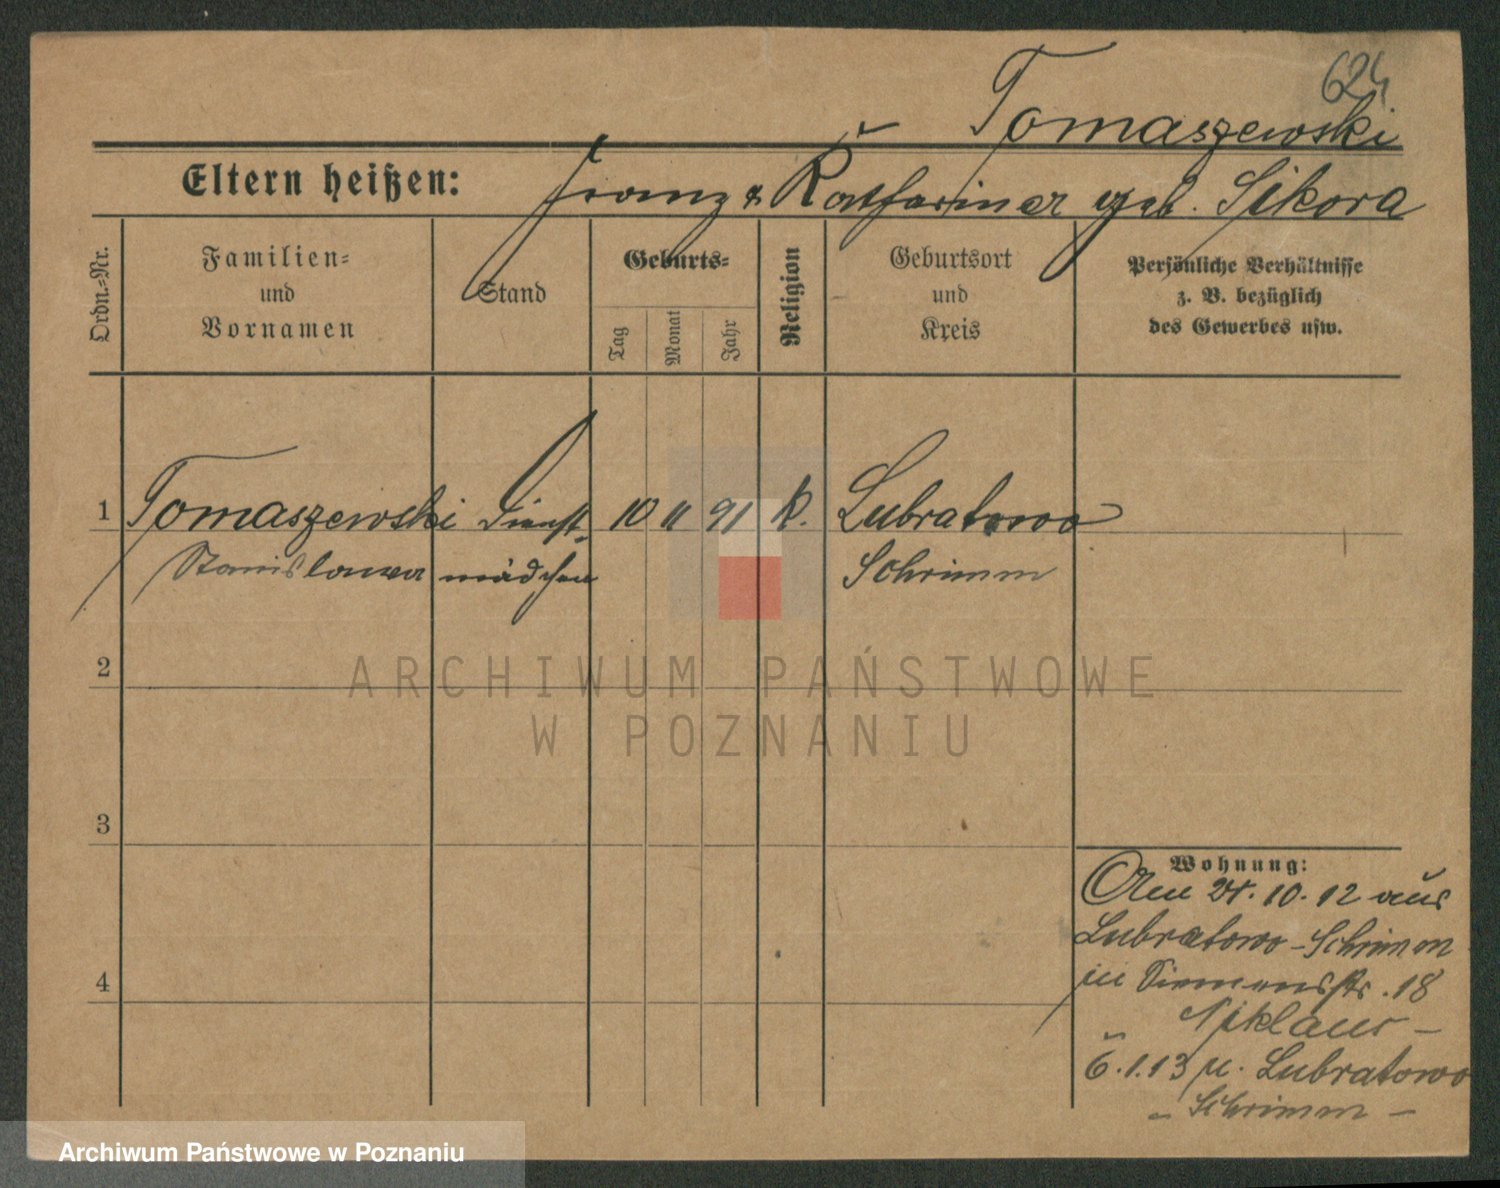 624
Tomaszewski
Eltern heißen: Franz & Katharina geb. Sikora
Ordn.-Nr.
Familien-
und
Vornamen
Stand
Geburts-
Tag
Monat
Jahr
Religion
Geburtsort
und
Kreis
Persönliche Verhältnisse
z. B. bezüglich
des Gewerbes usw.
1 Tomaszewski Dienst- 10 11 91 k. Lubratowo
Stanislawa mädchen Schrimm
2
3
4
Wohnung:
Am 24.10.12 aus
Lubratowo - Schrimm
in Siemensstr. 18
Niklaus -
6.1.13 n. Lubratowo
- Schrimm -
ARCHIWUM PAŃSTWOWE
W POZNANIU
Archiwum Państwowe w Poznaniu